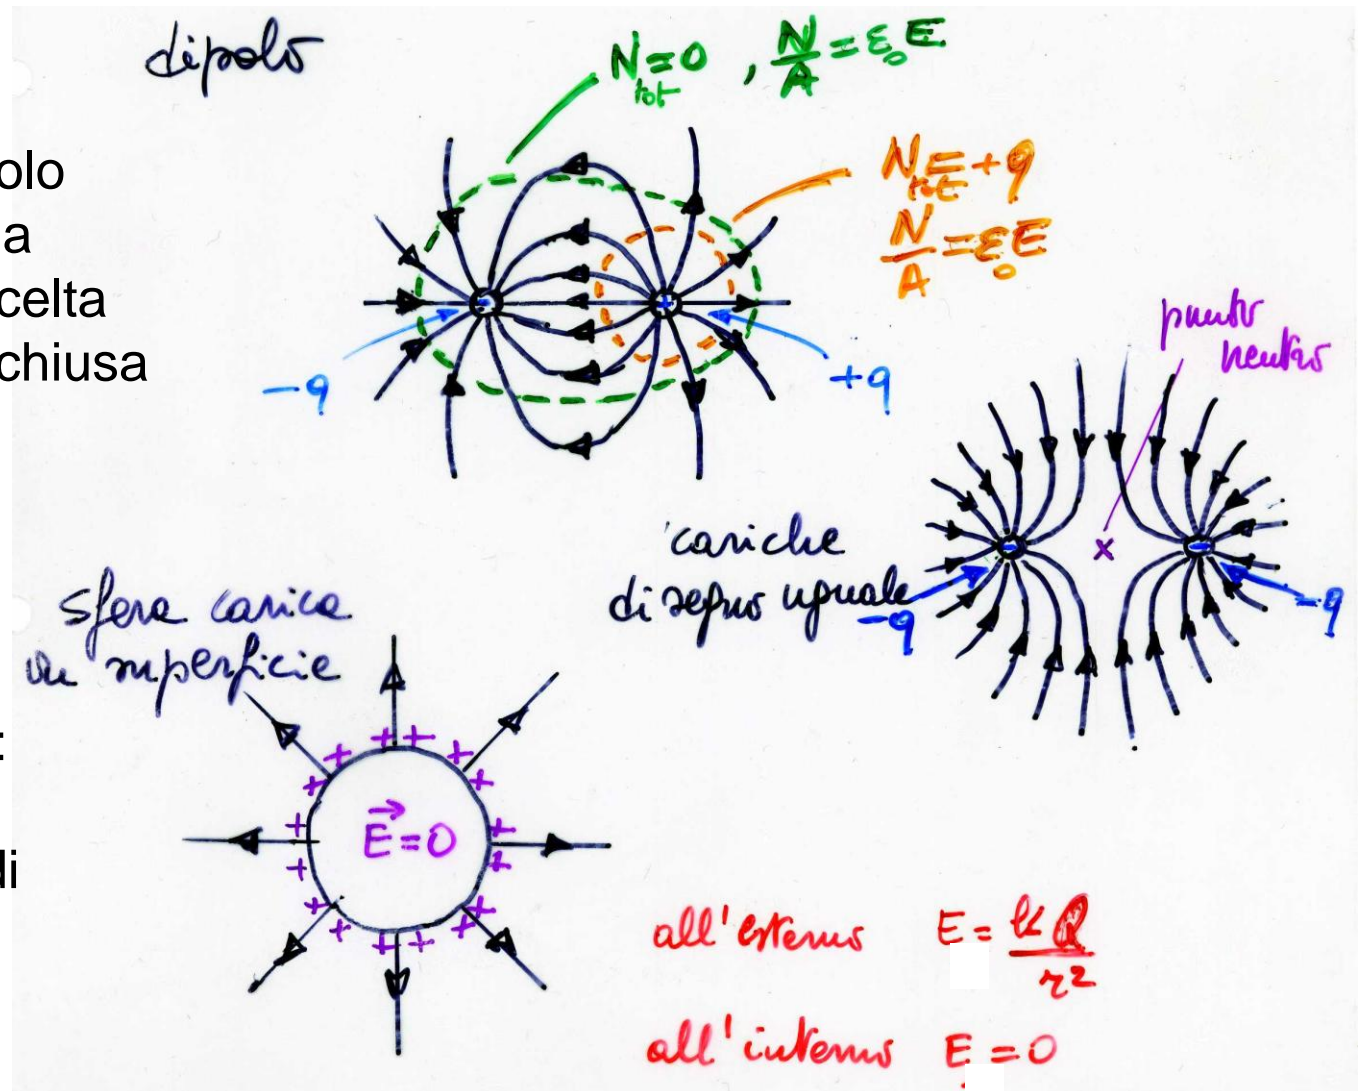 dipolo
N tot = 0 , N/A = ε₀E
olo
a
celta
chiusa
N tot = +q
N/A = ε₀E
-
+
-q
+q
punto
neutro
cariche
di segno uguale
x
-
-
-q
-q
sfera carica
in superficie
:
di
+ + + + + + + + + + + + + + + +
E⃗=0
all'esterno E = kQ/r²
all'interno E = 0